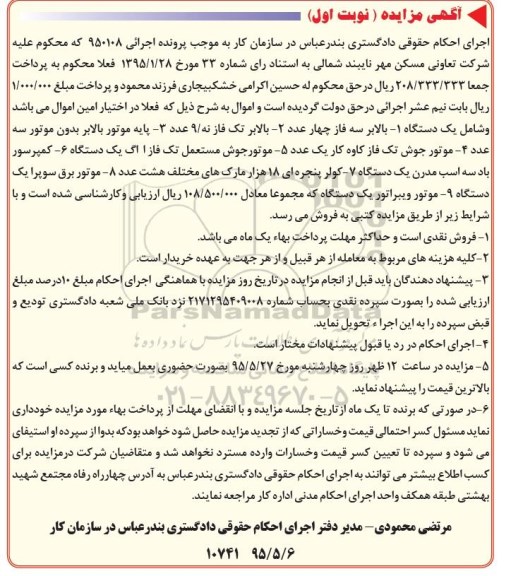 آگهی مزایده ( نوبت اول)
اجرای احکام حقوقی دادگستری بندرعباس در سازمان کار به موجب پرونده اجرائی ۹۵۰۱۰۸ که محکوم علیه
شرکت تعاونی مسکن مهر نایبند شمالی به استناد رای شماره ۳۳ مورخ ۱۳۹۵/۱/۲۸ فعلا محکوم به پرداخت
جمعا ۲۰۸/۳۳۳/۳۳۳ ریال درحق محکوم له حسین اکرامی خشکبیجاری فرزند محمود و پرداخت مبلغ ۱/۰۰۰/۰۰۰
ریال بابت نیم عشر اجرائی درحق دولت گردیده است و اموال به شرح ذیل که فعلا در اختیار امین اموال می باشد
وشامل یک دستگاه ۱- بالابر سه فاز چهار عدد ۲- بالابر تک فاز نه/۹ عدد ۳- پایه موتور بالابر بدون موتور سه
عدد ۴- موتور جوش تک فاز کاوه کار یک عدد ۵- موتورجوش مستعمل تک فاز ا اگ یک دستگاه ۶- کمپرسور
باد سه اسب مدرن یک دستگاه ۷-کولر پنجره ای ۱۸ هزار مارک های مختلف هشت عدد ۸- موتور برق سوپرا یک
دستگاه ۹- موتور ویبراتور یک دستگاه که مجموعا معادل ۱۰۸/۵۰۰/۰۰۰ ریال ارزیابی وکارشناسی شده است و با
شرایط زیر از طریق مزایده کتبی به فروش می رسد.
۱- فروش نقدی است و حداکثر مهلت پرداخت بهاء یک ماه می باشد.
۲-کلیه هزینه های مربوط به معامله از هر قبیل و از هر جهت به عهده خریدار است.
۳- پیشنهاد دهندگان باید قبل از انجام مزایده در تاریخ روز مزایده با هماهنگی اجرای احکام مبلغ ۱۰درصد مبلغ
ارزیابی شده را بصورت سپرده نقدی بحساب شماره ۲۱۷۱۲۹۵۴۰۹۰۰۸ نزد بانک ملی شعبه دادگستری تودیع و
قبض سپرده را به این اجراء تحویل نماید.
۴- اجرای احکام در رد یا قبول پیشنهادات مختار است.
۵- مزایده در ساعت ۱۲ ظهر روز چهارشنبه مورخ ۹۵/۵/۲۷ بصورت حضوری بعمل میاید و برنده کسی است که
بالاترین قیمت را پیشنهاد نماید.
۶-در صورتی که برنده تا یک ماه از تاریخ جلسه مزایده و با انقضای مهلت از پرداخت بهاء مورد مزایده خودداری
نماید مسئول کسر احتمالی قیمت وخساراتی که از تجدید مزایده حاصل شود خواهد بودکه بدوا از سپرده او استیفای
می شود و سپرده تا تعیین کسر قیمت وخسارات وارده مسترد نخواهد شد و متقاضیان شرکت درمزایده برای
کسب اطلاع بیشتر می توانند به اجرای احکام حقوقی دادگستری بندرعباس به آدرس چهارراه رفاه مجتمع شهید
بهشتی طبقه همکف واحد اجرای احکام مدنی اداره کار مراجعه نمایند.
مرتضی محمودی- مدیر دفتر اجرای احکام حقوقی دادگستری بندرعباس در سازمان کار
۹۵/۵/۶ ۱۰۷۴۱
ParsNamadData
۰۲۱-۸۸۳۴۹۶۷۰-۵